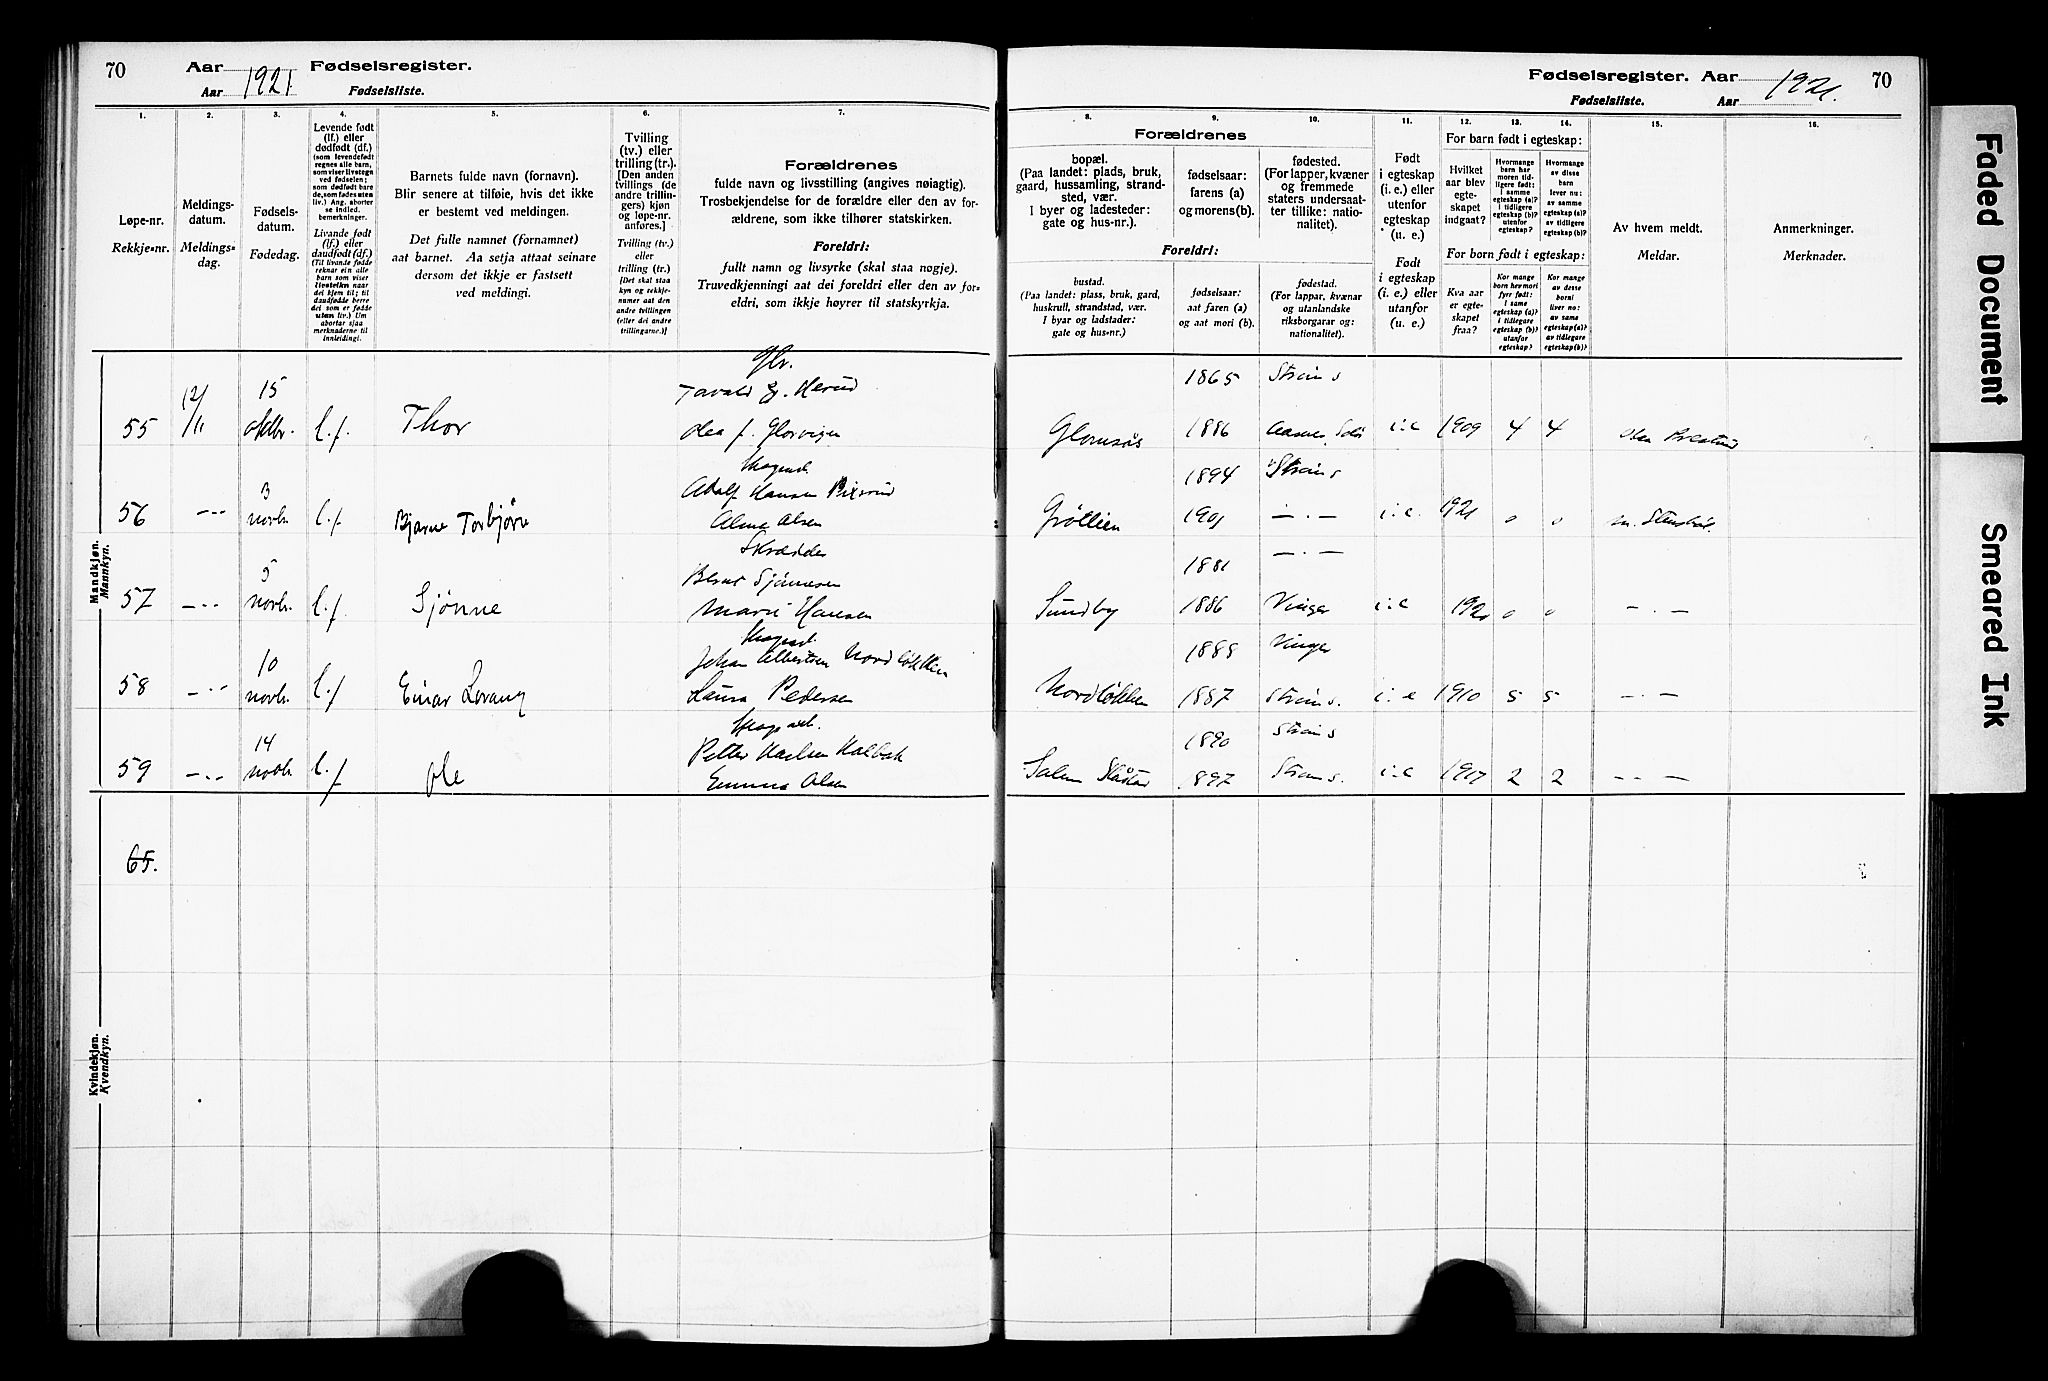 70 Aar 1921. Fødselsregister.
Aar Fødselsliste.
Fødselsregister. Aar 1921. 70
Fødselsliste. Aar
1. 2. 3. 4. 5. 6. 7.
Løpe-nr.
Rekkje-nr.
Meldings-
datum.
Meldings-
dag.
Fødsels-
datum.
Fødedag.
Levende født
(lf.) eller
dødfødt (df.)
(som levendefødt
regnes alle barn,
som viser livstegn
ved fødselen;
som dødfødt bare
de, som fødes uten
liv.) Ang. aborter
se indled.
bemerkninger.
Livande født
(lf.) eller
daudfødt (df.)
(Til livande fødde
reknar ein alle
barn som viser
livsteikn naar
dei kjem til; til
daudfødde berre
dei som er fødde
utan liv.) Um
abortar sjaa
merknaderne til
innleiding!
Barnets fulde navn (fornavn).
Blir senere at tilføie, hvis det ikke
er bestemt ved meldingen.
Det fulle namnet (fornamnet)
aat barnet. Aa setja attaat seinare
dersom det ikkje er fastsett
ved meldingi.
Tvilling
(tv.) eller
trilling (tr.).
[Den anden
tvillings (de
andre trillin-
gers) kjøn
og løpe-nr.
anføres.]
Tvilling (tv.)
eller
trilling (tr.)
[Det skal staa
kyn og rekkje-
numer aat den
andre tvillingen
(eller dei andre
trillingarne.)]
Forældrenes
fulde navn og livsstilling (angives nøiagtig).
Trosbekjendelse for de forældre eller den av for-
ældrene, som ikke tilhører statskirken.
Foreldri:
fullt namn og livsyrke (skal staa nøgje).
Truvedkjenningi aat dei foreldri eller den av for-
eldri, som ikkje høyrer til statskyrkja.
8. 9. 10. 11. 12. 13. 14. 15. 16.
Forældrenes
bopæl.
(Paa landet: plads, bruk,
gaard, hussamling, strand-
sted, vær.
I byer og ladesteder:
gate og hus-nr.).
fødselsaar:
farens (a)
og morens (b).
fødested.
(For lapper, kvæner
og fremmede
staters undersaat-
ter tillike: natio-
nalitet).
Foreldri:
bustad.
(Paa landet: plass, bruk, gard,
huskrull, strandstad, vær.
I byar og ladstader:
gate og hus-nr.)
fødselsaar:
aat faren (a)
og aat mori (b).
fødestad.
(For lappar, kvænar
og utanlandske
riksborgarar og:
nationalitet).
Født
i egteskap
(i. e.) eller
utenfor
egteskap
(u. e.)
Født
i egteskap
(i. e.) eller
utanfor
(u. e.)
For barn født i egteskap:
Hvilket
aar blev
egte-
skapet
indgaat?
Hvormange
barn har
moren tid-
ligere født:
I samme
egteskap (a)?
I tidligere
egteskap (b)?
utenfor
egteskap?
Hvormange
av disse
barn
lever nu:
av samme
egteskap (a)?
av tidligere
egteskap (b)?
For born født i egteskap:
Kva aar
er egte-
skapet
fraa?
Kor mange
born hev mori
fyrr født:
I same
egteskap (a)?
I tidlegare
egteskap (b)?
utanfor
egteskap?
Kor mange
av desse
borni
liver no:
av same
egteskap (a)?
av tidlegare
egteskap (b)?
Av hvem meldt.
Meldar.
Anmerkninger.
Merknader.
Mandkjøn.
Mannkyn.
1865
55 12/11 15 oktbr. l.f. Thor 1886 i.e 1909 4 4
1894
56 3 novbr. l.f. Bjarne Torbjørn Adolf Hansen
Alma Olsen 1901 i.e. 1921 0 0
1881
57 5 novbr. l.f. Sjønne
Marie Hansen Sundby 1886 Vinger i.e 1920 0 0
1888 Vinger
58 10 novbr. l.f Einar Johan Albertsen Nordløkken
Laura Pedersen Nordløkken 1887 i.e 1910 5 5
1890
59 14 novbr. l.f Ole Petter Karlsen
Emma Olsen 1897 i.e 1917 2 2
65.
Kvindekjøn.
Kvendkyn.
Faded Document
Smeared Ink